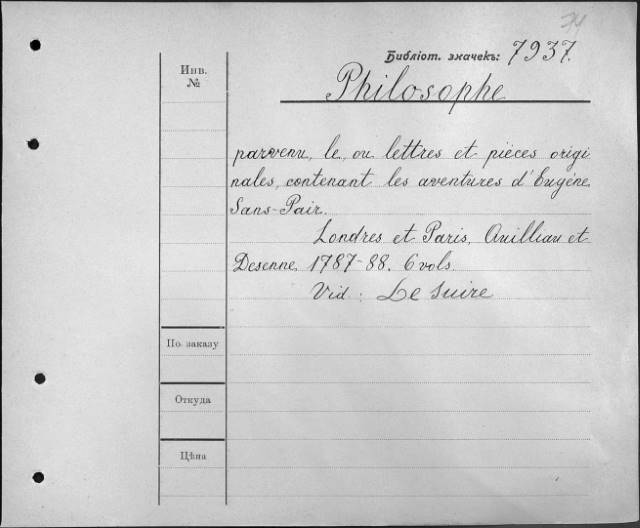 24
Библіот. значекъ: 7937.
Инв.
№
Philosophe
parvenu, le, ou lettres et pièces origi
nales, contenant les aventures d'Eugène
Sans-Pair.
Londres et Paris, Quilliau et
Desenne, 1787-88. 6 vols.
Vid: Le Suire
По заказу
Откуда
Цѣна